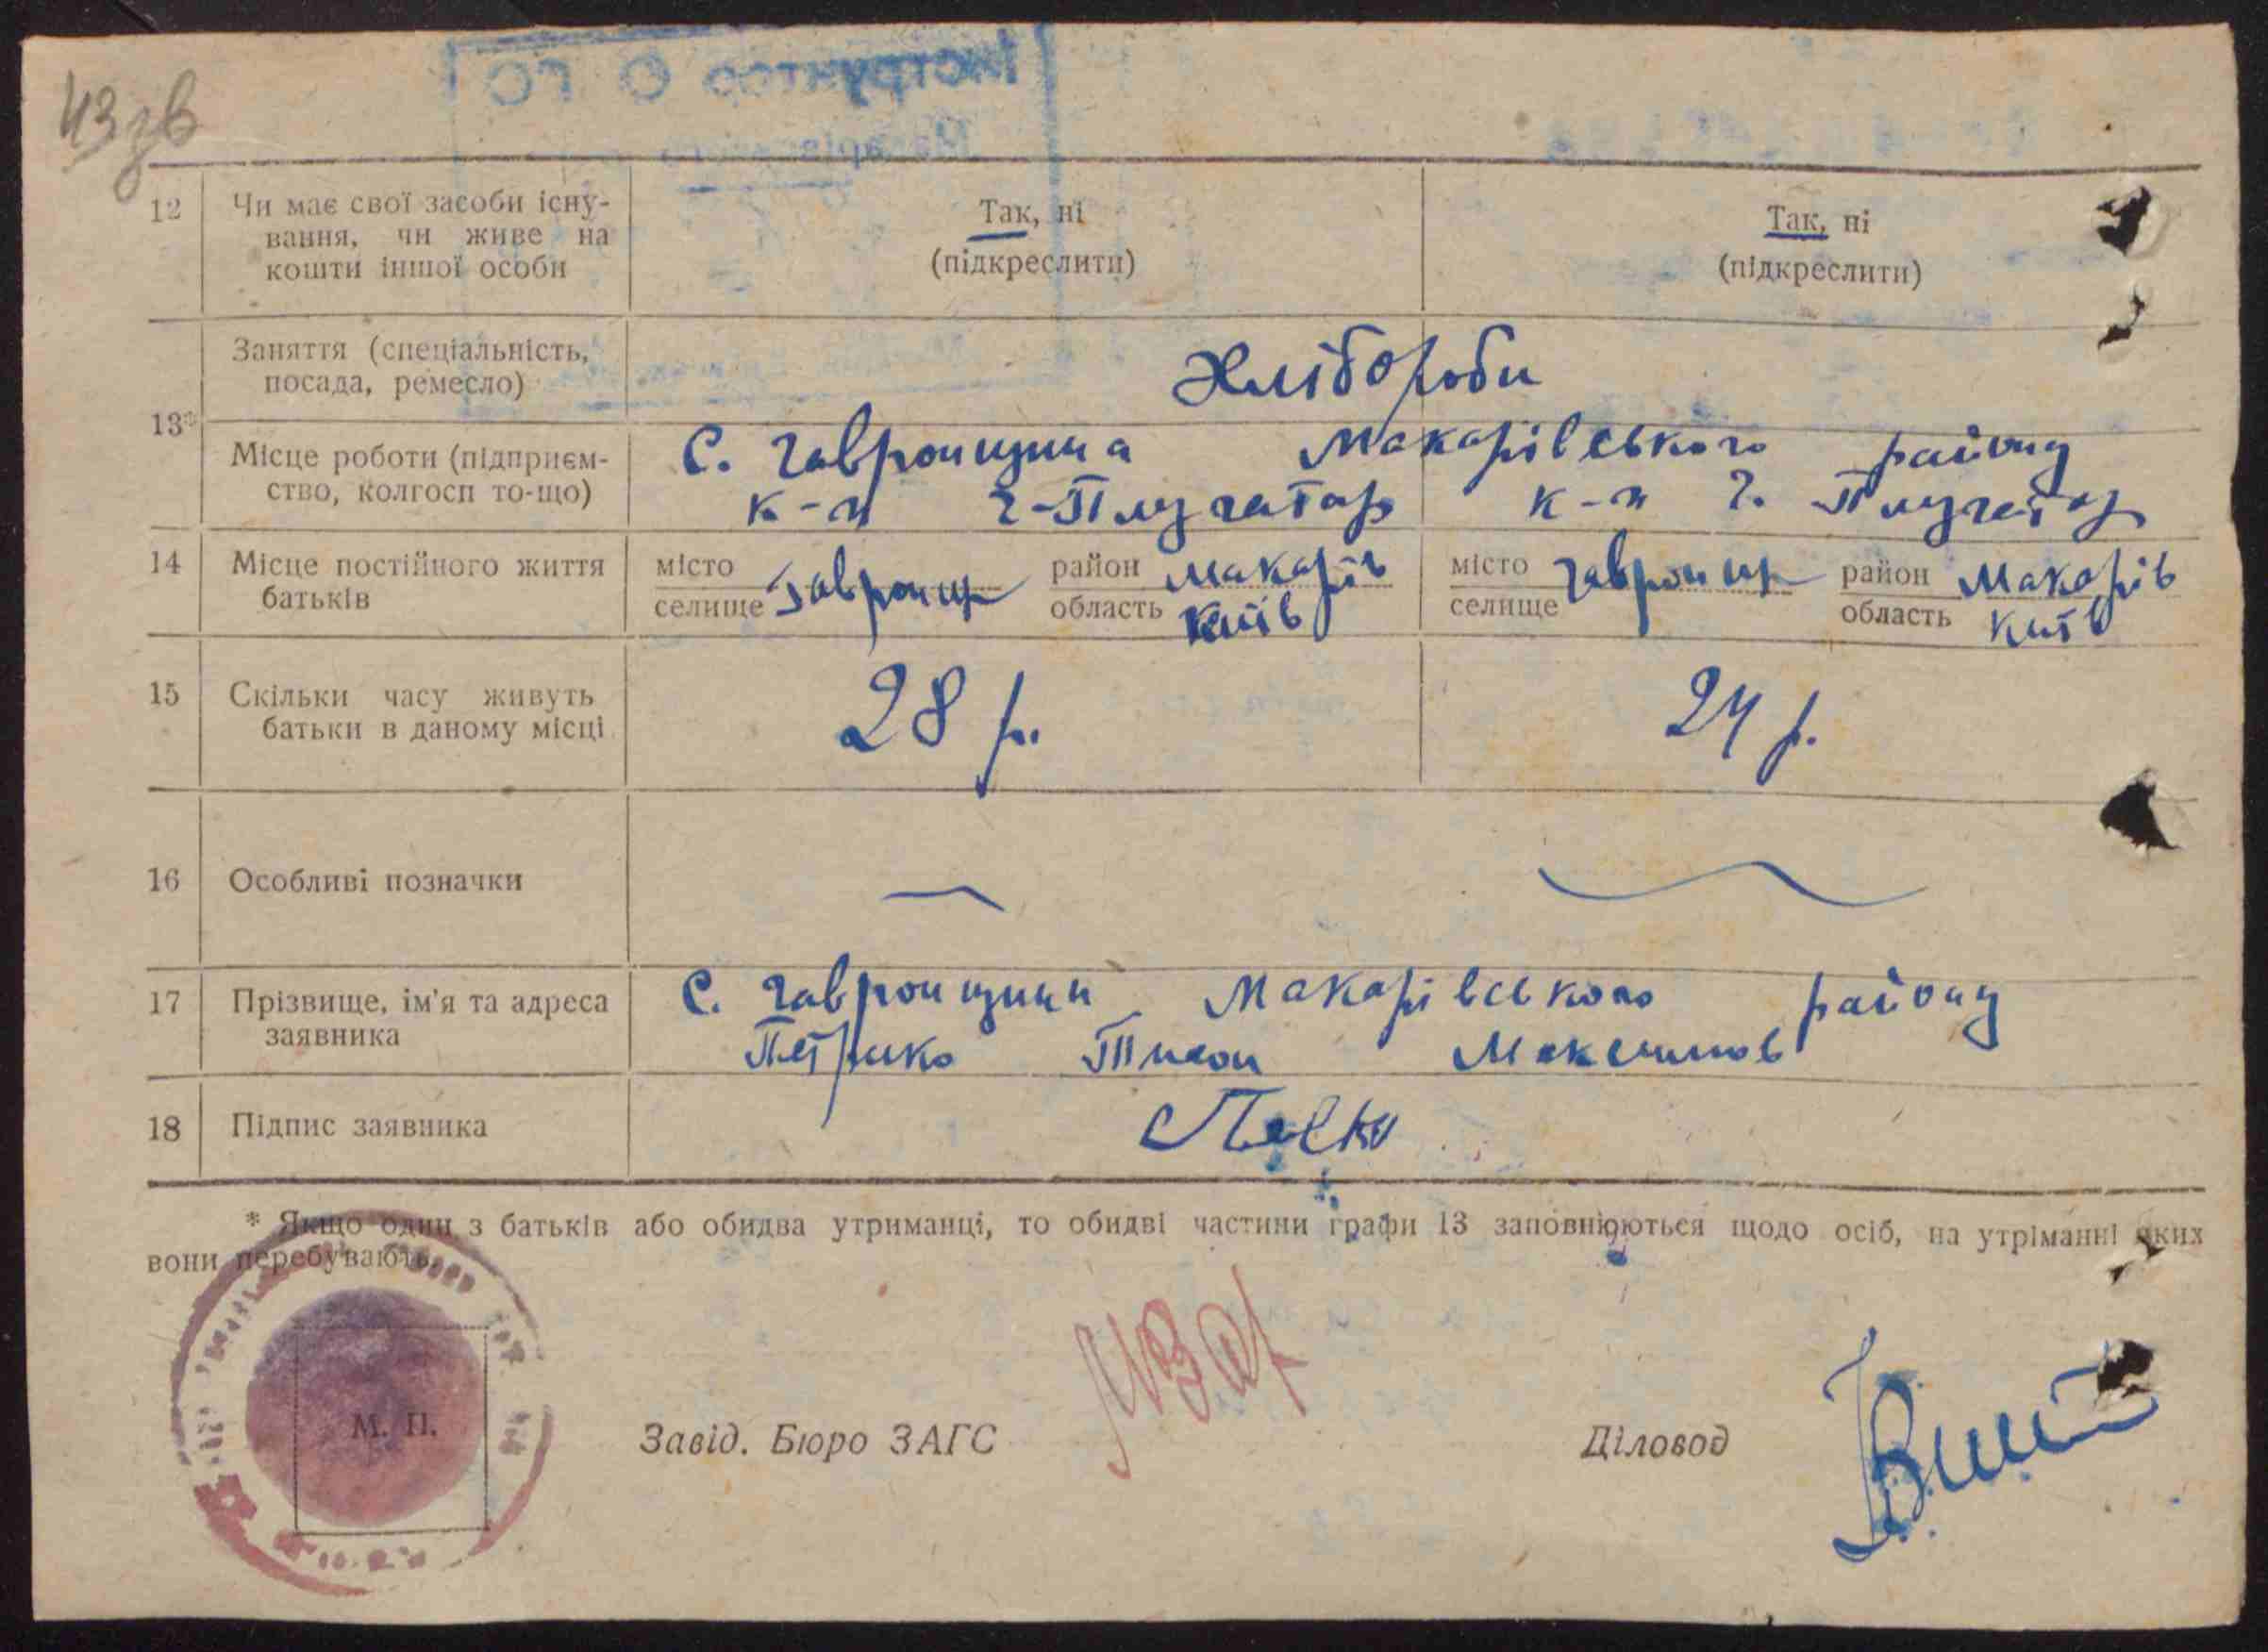 43 зв
12 Чи має свої засоби існу-
вання, чи живе на
кошти іншої особи
Так, ні
(підкреслити)
Так, ні
(підкреслити)
13* Заняття (спеціальність,
посада, ремесло)
Хлібороби
Місце роботи (підприєм-
ство, колгосп то-що)
С. Гавронщина Макарівського району
к-п Ч-Плугатар к-п Ч. Плугатар
14 Місце постійного життя
батьків
місто
селище Гавронщ
район Макарів
область Київ
місто
селище Гавронщ
район Макарів
область Київ
15 Скільки часу живуть
батьки в даному місці
28 р. 24 р.
16 Особливі позначки
17 Прізвище, ім'я та адреса
заявника
С. Гавронщини Макарівського району
Петрико Тихон Максимов
18 Підпис заявника
* Якщо один з батьків або обидва утриманці, то обидві частини графи 13 заповнюються щодо осіб, на утріманні яких
вони перебувають.
М. П.
Завід. Бюро ЗАГС
Діловод